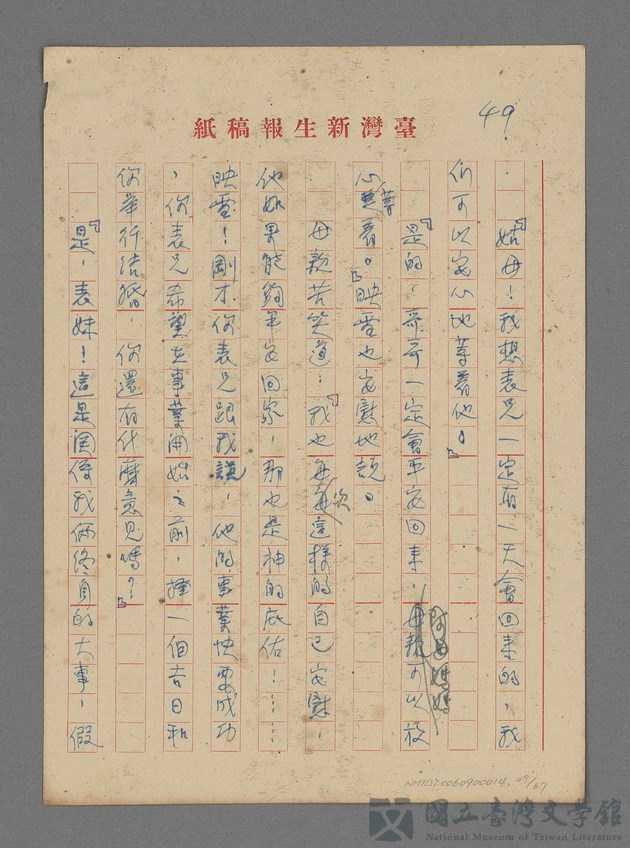 49
紙稿報生新灣臺
「姑母！我想表兄一定有一天會回來的，我
們可以安心地等着他。」
「是的，哥哥一定會平安回來，母親可以放
心等着。」映雪也安慰地說。
母親苦笑道：「我也每次這樣的自己安慰，
他如果能夠平安回家，那也是神的庇佑！……
映雪！剛才你表兄跟我說，他的事業快要成功
，你表兄希望在事業開始之前，擇一個吉日和
你舉行結婚，你還有什麼意見嗎？」
「是，表妹！這是關係我倆終身的大事，假
NMTL20060900014. 49/67
國立臺灣文學館
National Museum of Taiwan Literature